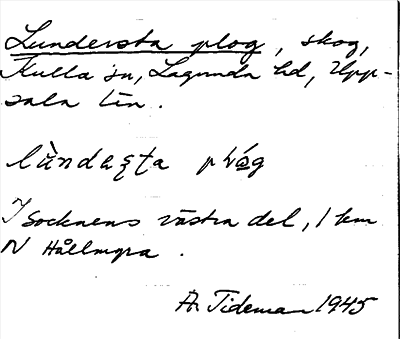 Lundersta plog, skog,
Kulla sn, Lagunda hd, Upp-
sala län.
lùndeṣṭa plóg
I socknens västra del, 1 km
N Hällmyra.
A. Tideman 1945